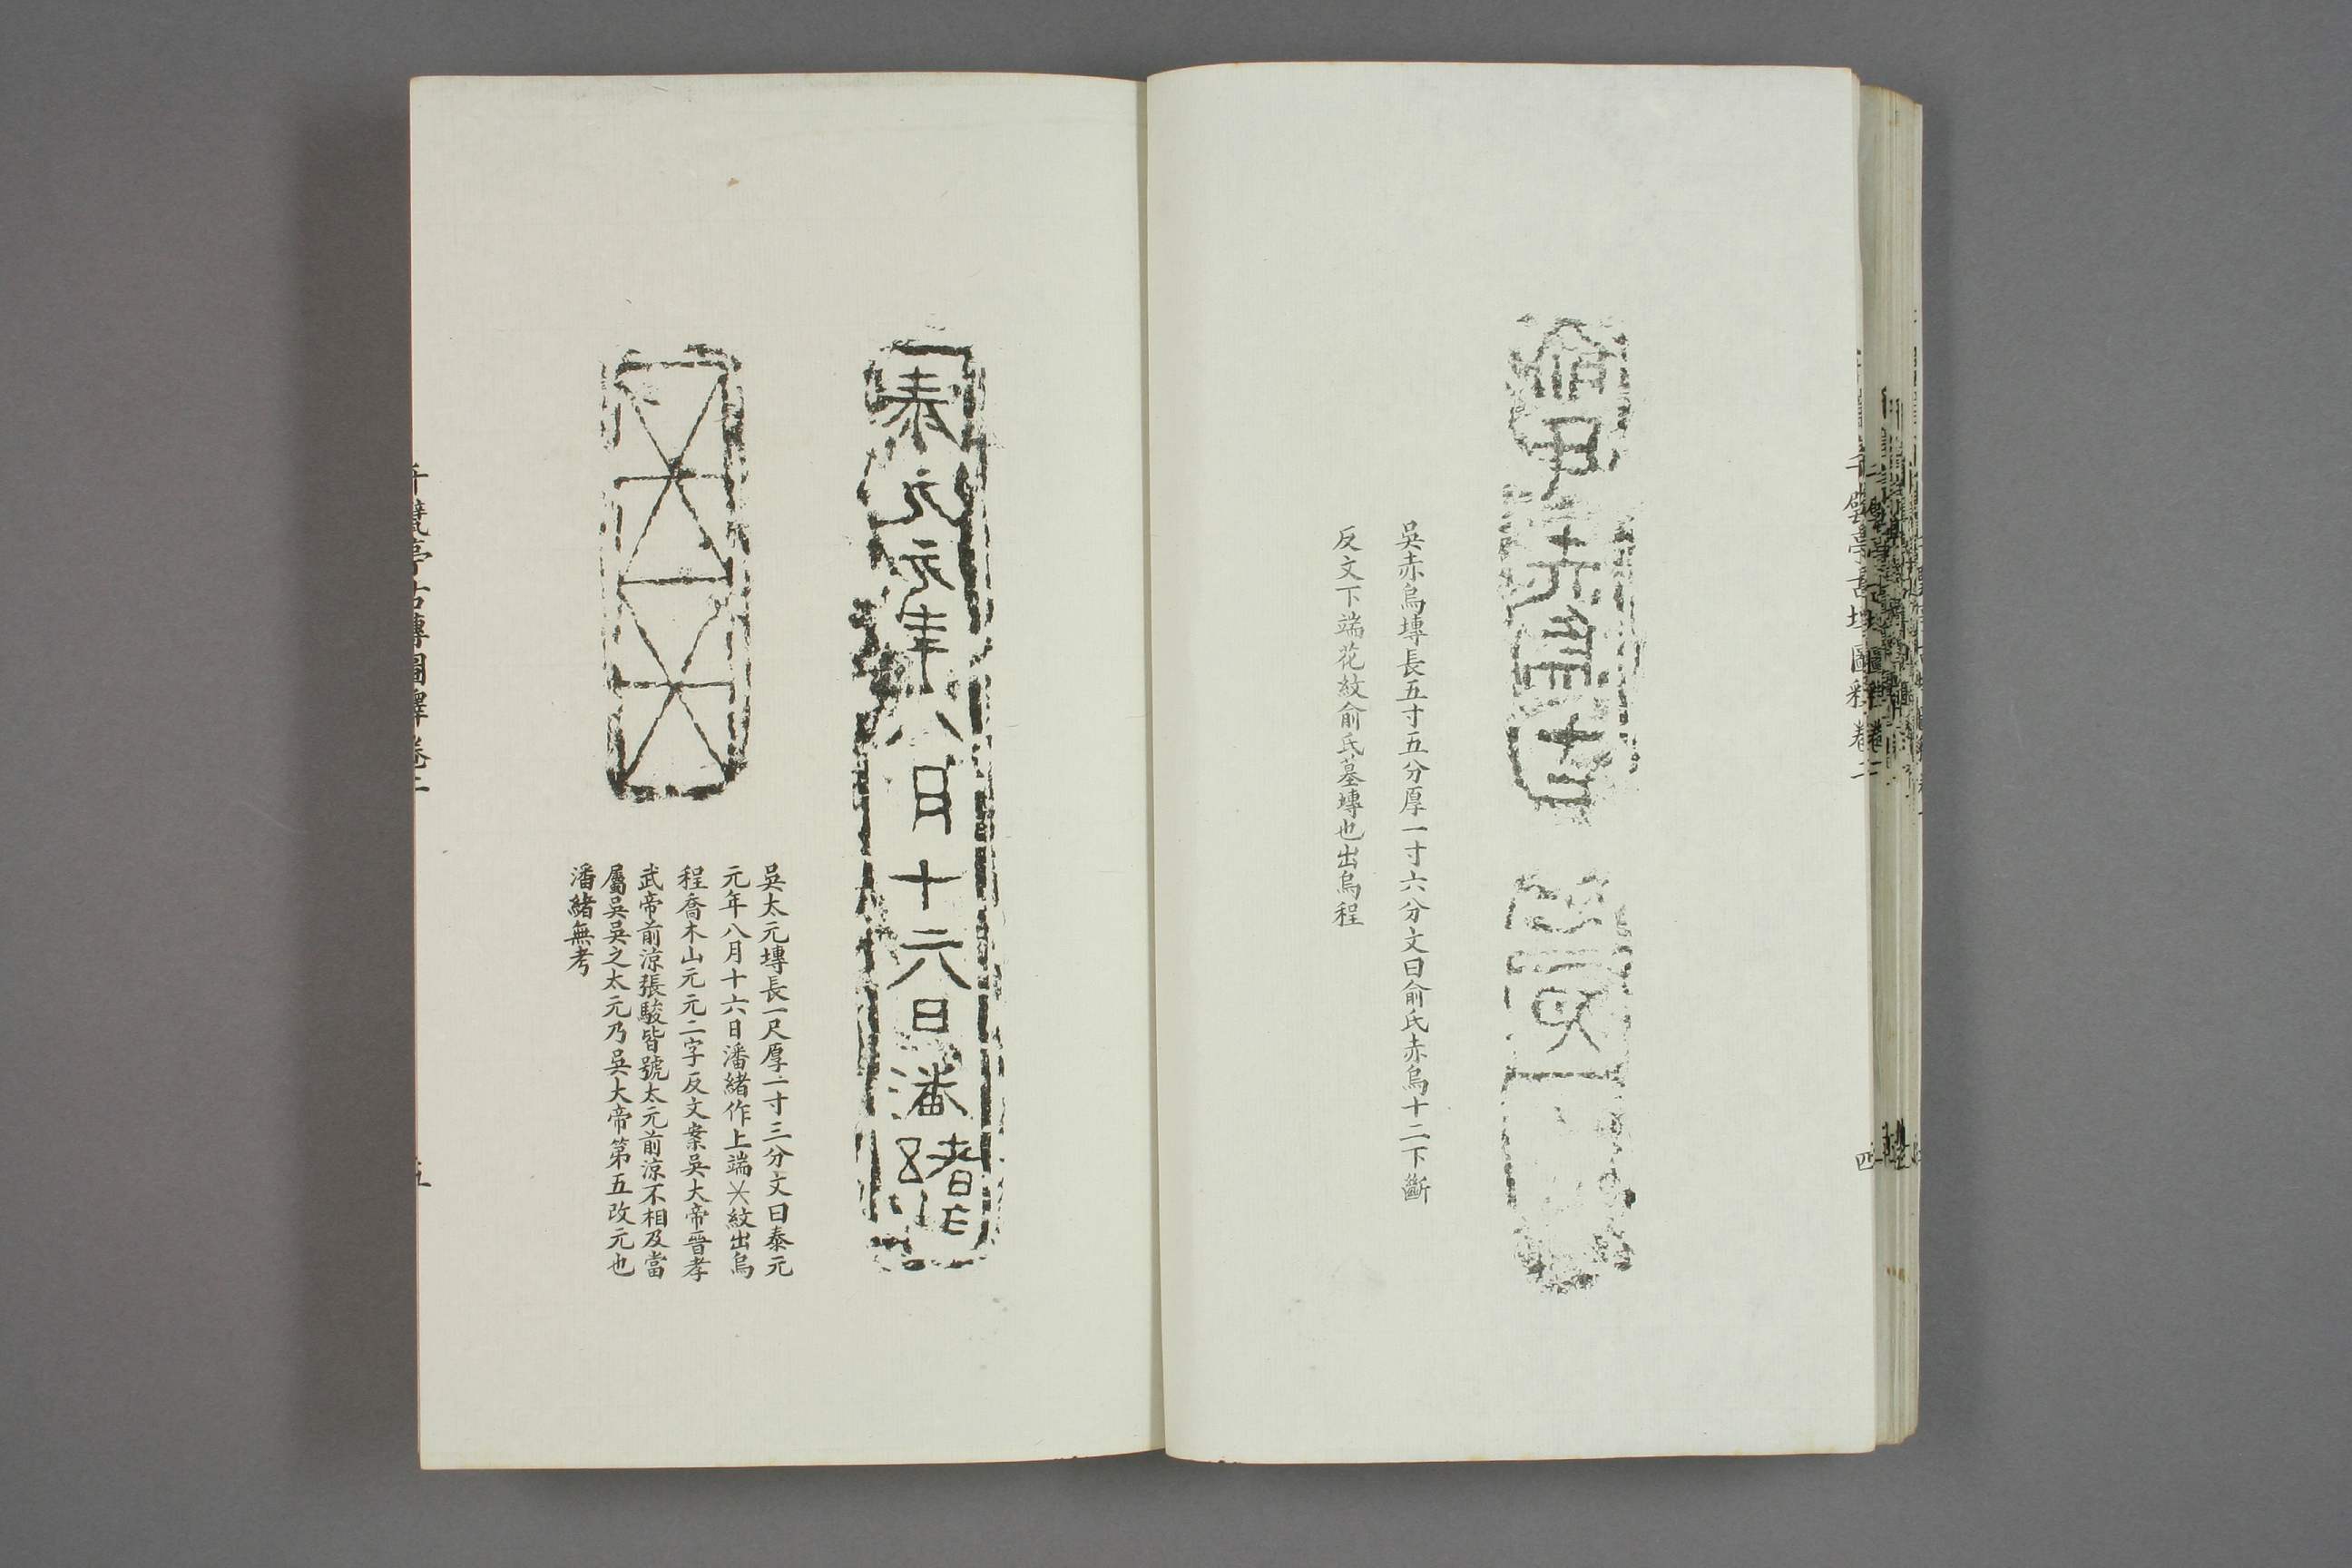 俞氏赤烏十二
吳赤烏塼長五寸五分厚一寸六分文曰俞氏赤烏十二下斷
反文下端花紋俞氏墓塼也出烏程
泰元元年八月十六日潘緒作
吳太元塼長一尺厚一寸三分文曰泰元
元年八月十六日潘緒作上端㐅紋出烏
程喬木山元元二字反文案吳大帝晉孝
武帝前涼張駿皆號太元前涼不相及當
屬吳吳之太元乃吳大帝第五改元也
潘緒無考
千甓亭古塼圖釋 卷二
五